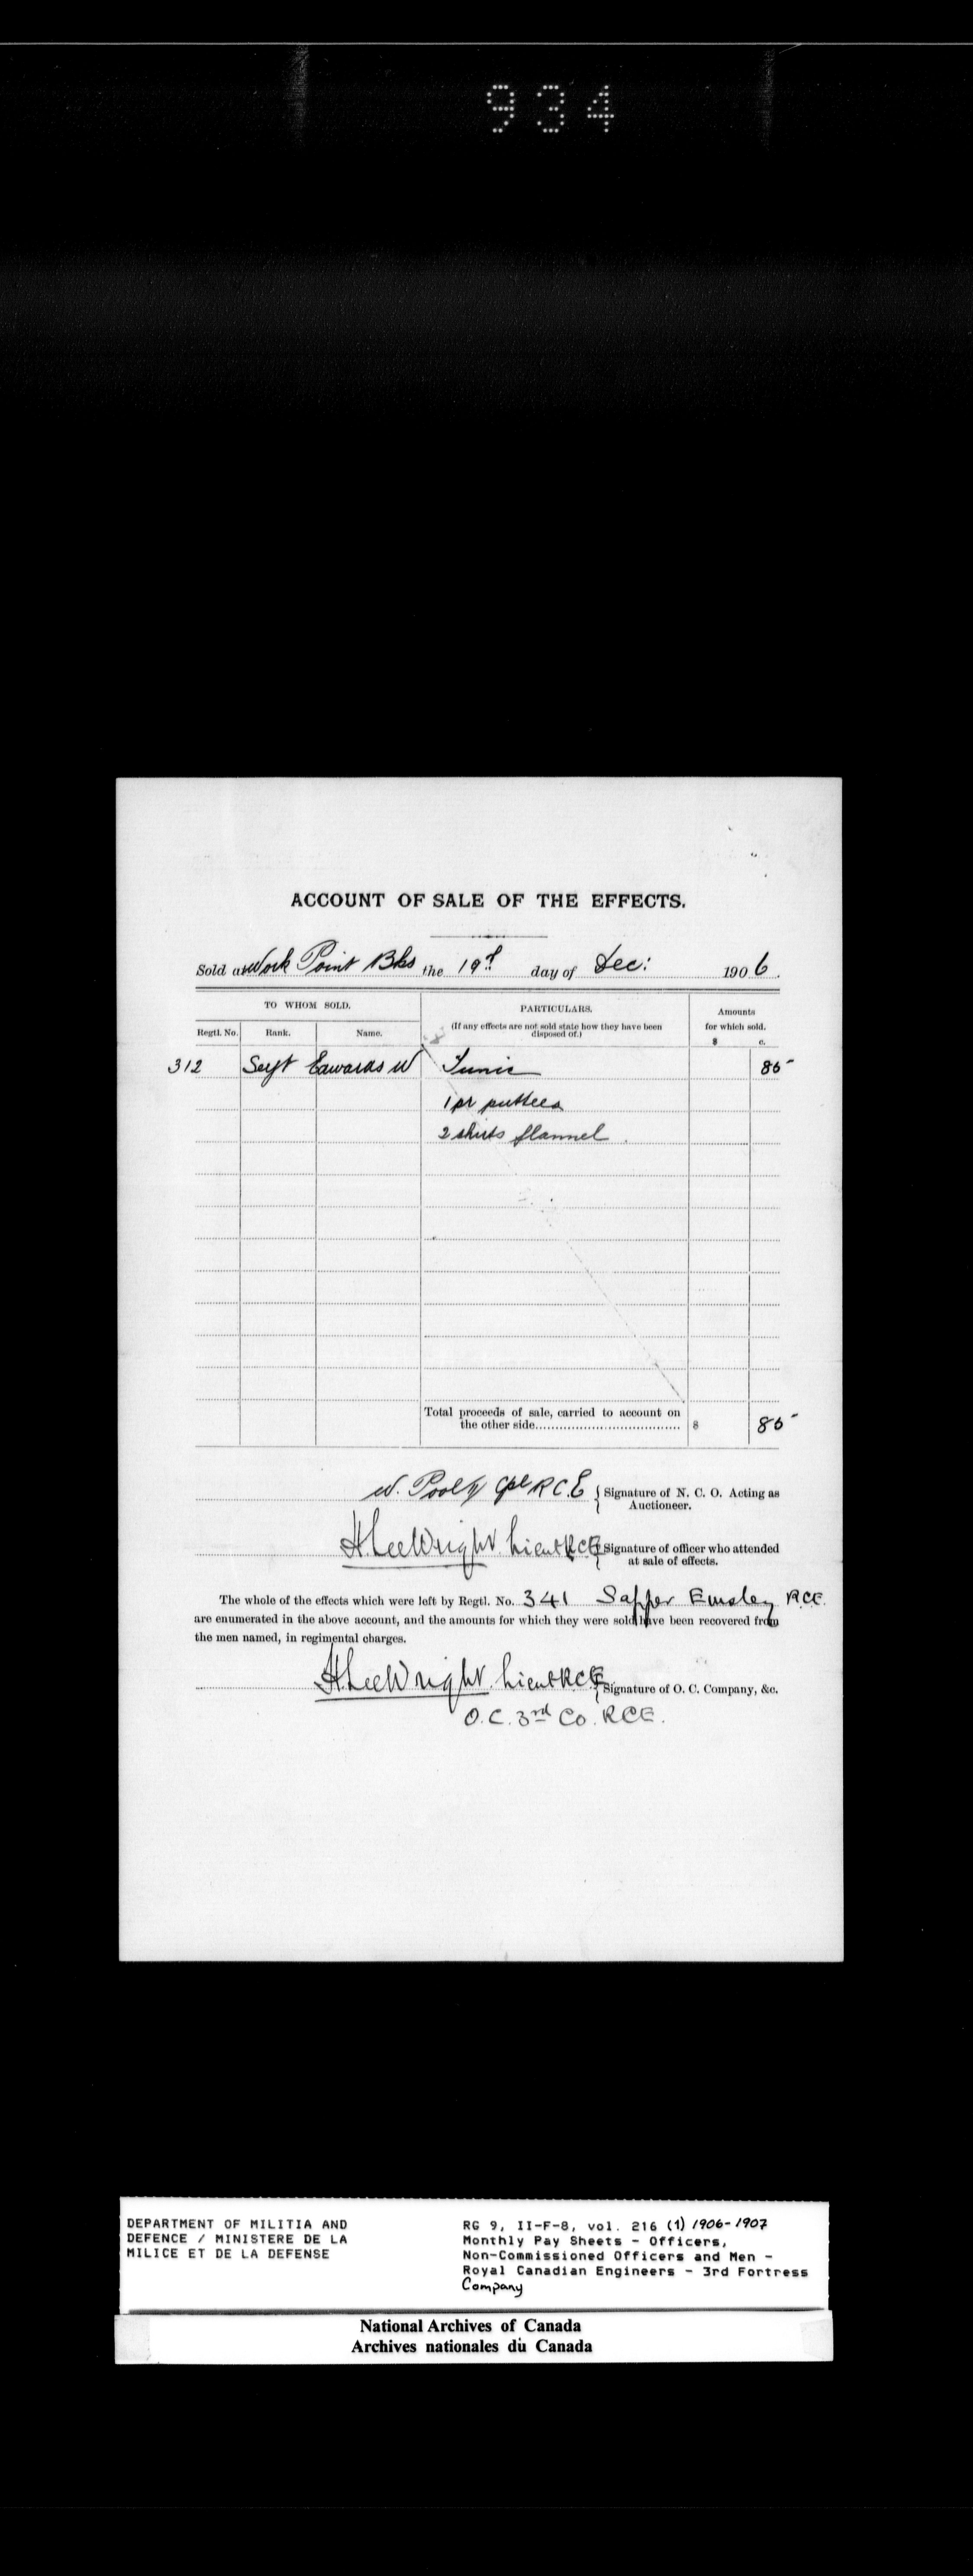 934
ACCOUNT OF SALE OF THE EFFECTS.
Sold at Work Point Bks the 19th day of Dec: 1906.
TO WHOM SOLD. PARTICULARS. Amounts
Regtl. No. Rank. Name. (If any effects are not sold state how they have been disposed of.) for which sold.
$ c.
312 Sergt Edwards W Tunic 85
1 pr puttees
2 shirts flannel
Total proceeds of sale, carried to account on
the other side.................................... $ 85
W. Pooley Cpl R.C.E { Signature of N. C. O. Acting as
Auctioneer.
H. Lee Wright. Lieut RCE { Signature of officer who attended
at sale of effects.
The whole of the effects which were left by Regtl. No. 341 Sapper Emsley R.C.E.
are enumerated in the above account, and the amounts for which they were sold have been recovered from
the men named, in regimental charges.
H Lee Wright. Lieut RCE { Signature of O. C. Company, &c.
O.C. 3rd Co. RCE.
DEPARTMENT OF MILITIA AND
DEFENCE / MINISTERE DE LA
MILICE ET DE LA DEFENSE
RG 9, II-F-8, vol. 216 (1) 1906-1907
Monthly Pay Sheets - Officers,
Non-Commissioned Officers and Men -
Royal Canadian Engineers - 3rd Fortress
Company
National Archives of Canada
Archives nationales du Canada